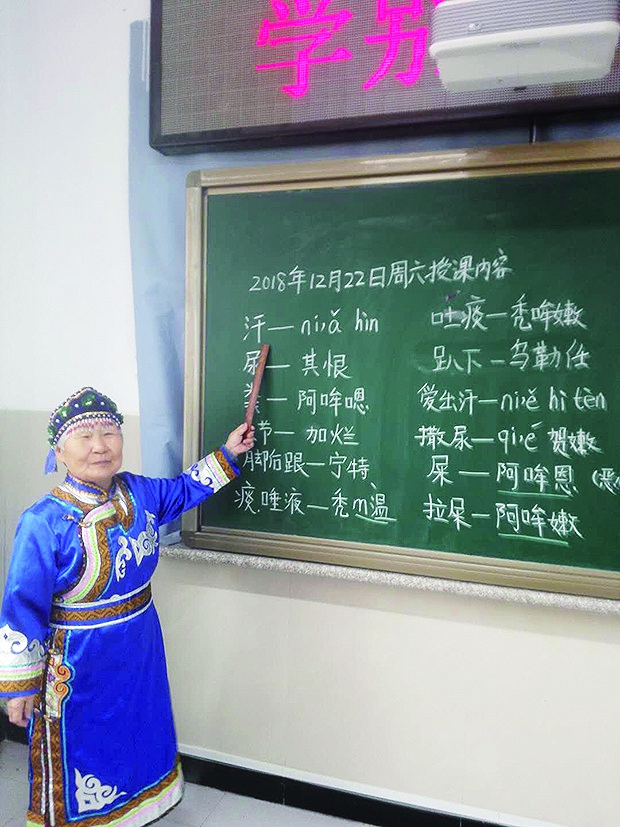 学别
2018年12月22日周六授课内容
汗—ni,ǎ hìn
尿—其恨
粪—阿哞嗯
节—加烂
脚后跟—宁特
痰.唾液—秃m温
吐痰—秃哞嫩
趴下—乌勒任
爱出汗—ni,ě hi tèn
撒尿—qi,é 贺嫩
屎—阿哞恩(恶
拉屎—阿哞嫩